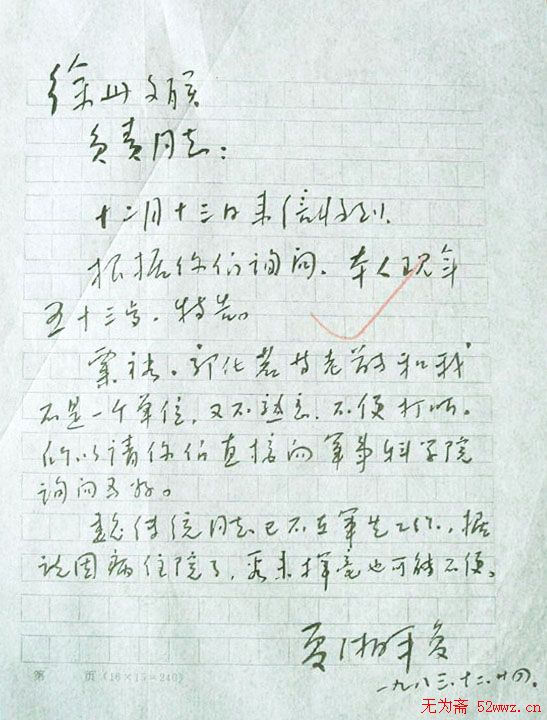 徐州文展
负责同志：
十二月十三日来信收到。
根据你们询问，本人现年
五十三岁。特告。
粟裕、郭化若等老前辈和我
不是一个单位，又不熟悉，不便打听。
所以请你们直接向军事科学院
询问为好。
魏传统同志已不在军艺工作，据
说因病住院了，看来挥毫也可能不便。
夏湘平复
一九八三.十二.廿四.
第 页(16×15=240)
无为斋 52wwz.cn